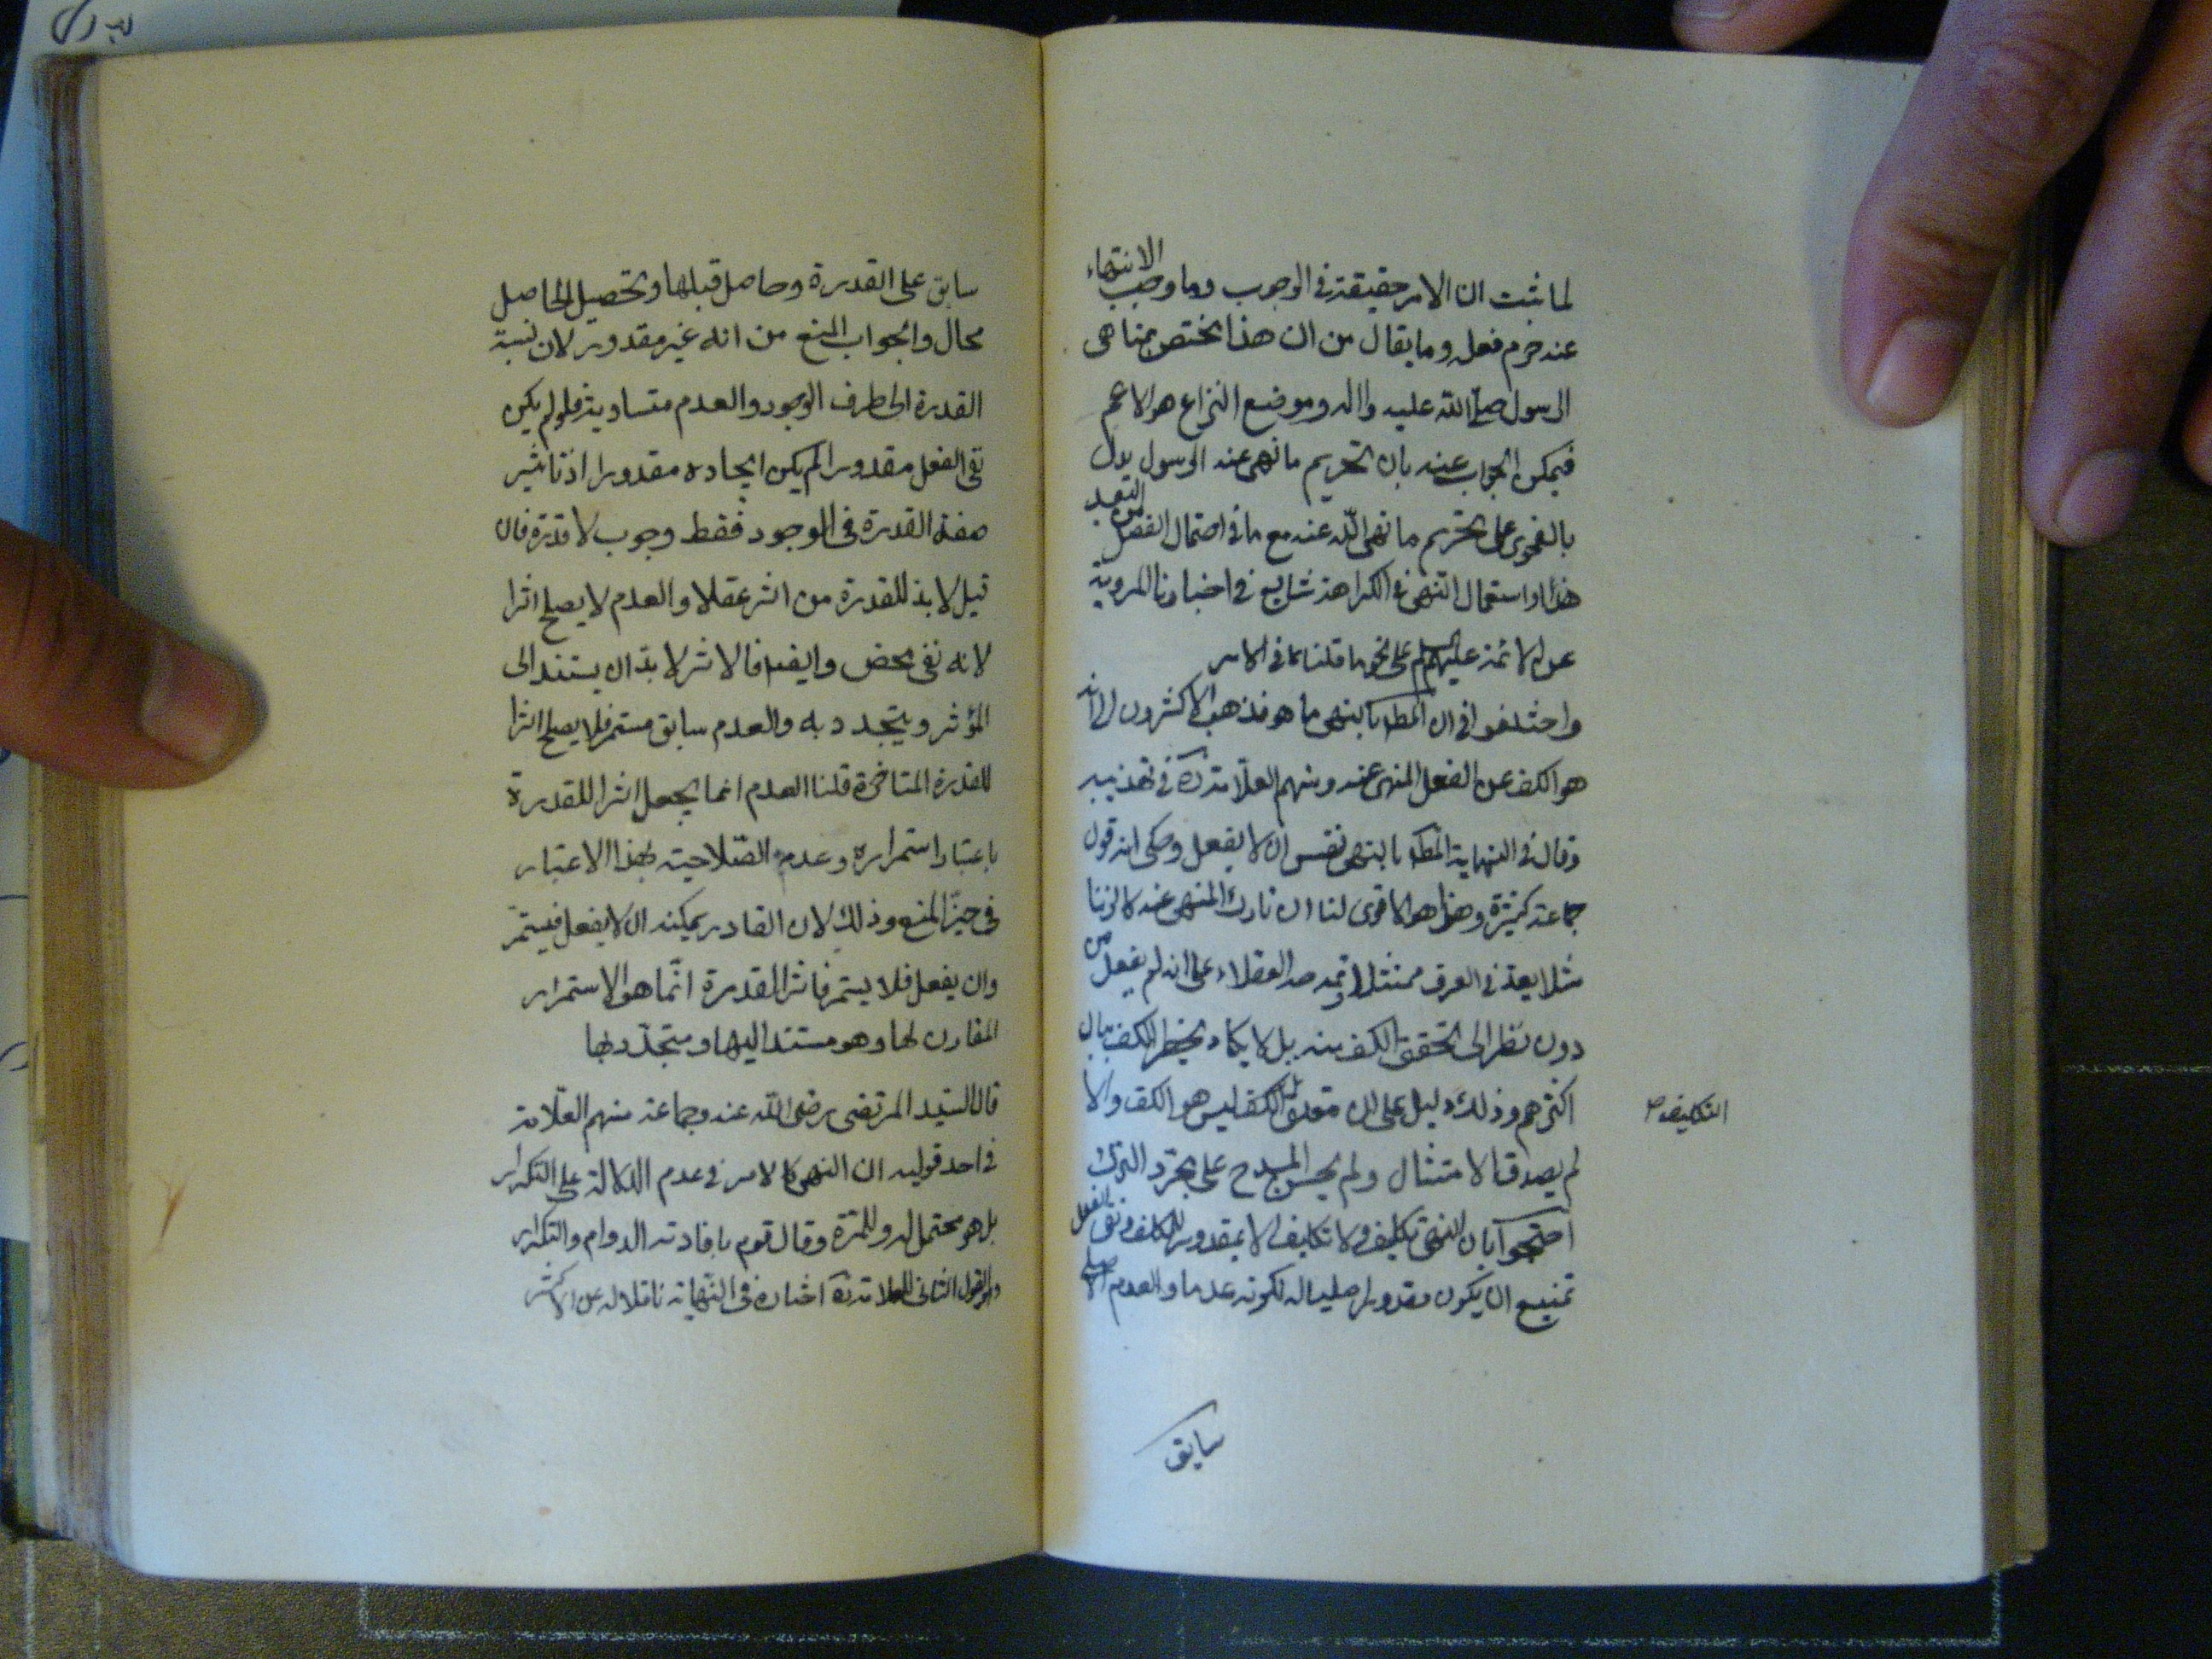 لما ثبت ان الامر حقيقة في الوجوب وما وجب الانتهاء
عنه حرم فعله وما يقال من ان هذا يختص بمناهى
الرسول صلى الله عليه واله وموضع النزاع هو الاعم
فيمكن الجواب عنه بان تحريم ما نهى عنه الرسول يدل
بالفحوى على تحريم ما نهى الله عنه مع ما في احتمال الفصل من البعد
هذا واستعمال النهى في الكراهة شايع في اخبارنا المروية
عن الائمة عليهم على نحو ما قلناه في الامر
واختلفوا في ان المط بالنهى ما هو فذهب الاكثرون الى انه
هو الكف عن الفعل المنهى عنه ومنهم العلامة ره في تهذيبه
وقال في النهاية المط بالنهى نفس ان لا يفعل وحكى انه قول
جماعة كثيرة وهذا هو الاقوى لنا ان تارك المنهى عنه كالزنا
مثلا يعد في العرف ممتثلا ويمدحه العقلاء على انه لم يفعل من
دون نظر الى تحقق الكف منه بل لا يكاد يخطر الكف ببال
اكثرهم وذلك دليل على ان متعلق الكف ليس هو الكف والا
التكليف
لم يصدق الامتثال ولم يحسن المدح على مجرد الترك
احتجوا بان النهى تكليف ولا تكليف الا بمقدور للمكلف ونفى الفعل
يمتنع ان يكون مقدورا له لكونه عدما والعدم الاصلى
سابق
سابق على القدرة وحاصل قبلها وتحصيل الحاصل
محال والجواب المنع من انه غير مقدور لان نسبة
القدرة الى طرف الوجود والعدم متساوية فلو لم يكن
نفى الفعل مقدورا لم يكن ايجاده مقدورا اذ تاثير
صفة القدرة في الوجود فقط وجوب لا قدرة فان
قيل لا بد للقدرة من اثر عقلا والعدم لا يصلح اثرا
لانه نفى محض وايضا فالاثر لا بد ان يستند الى
المؤثر ويتجدد به والعدم سابق مستمر فلا يصلح اثرا
للقدرة المتاخرة قلنا العدم انما يجعل اثرا للقدرة
باعتبار استمراره وعدم الصلاحيته بهذا الاعتبار
في حيز المنع وذلك لان القادر يمكنه ان لا يفعل فيستمر
وان يفعل فلا يستمر فاثر القدرة انما هو الاستمرار
المقارن لها وهو مستند اليها ومتجدد بها
قال السيد المرتضى رضى الله عنه وجماعة منهم العلامة
في احد قوليه ان النهى كالامر في عدم الدلالة على التكرار
بل هو محتمل له وللمرة وقال قوم بافادته الدوام والتكرار
وهو القول الثانى للعلامة ره اختاره في النهاية ناقلا له عن الاكثر